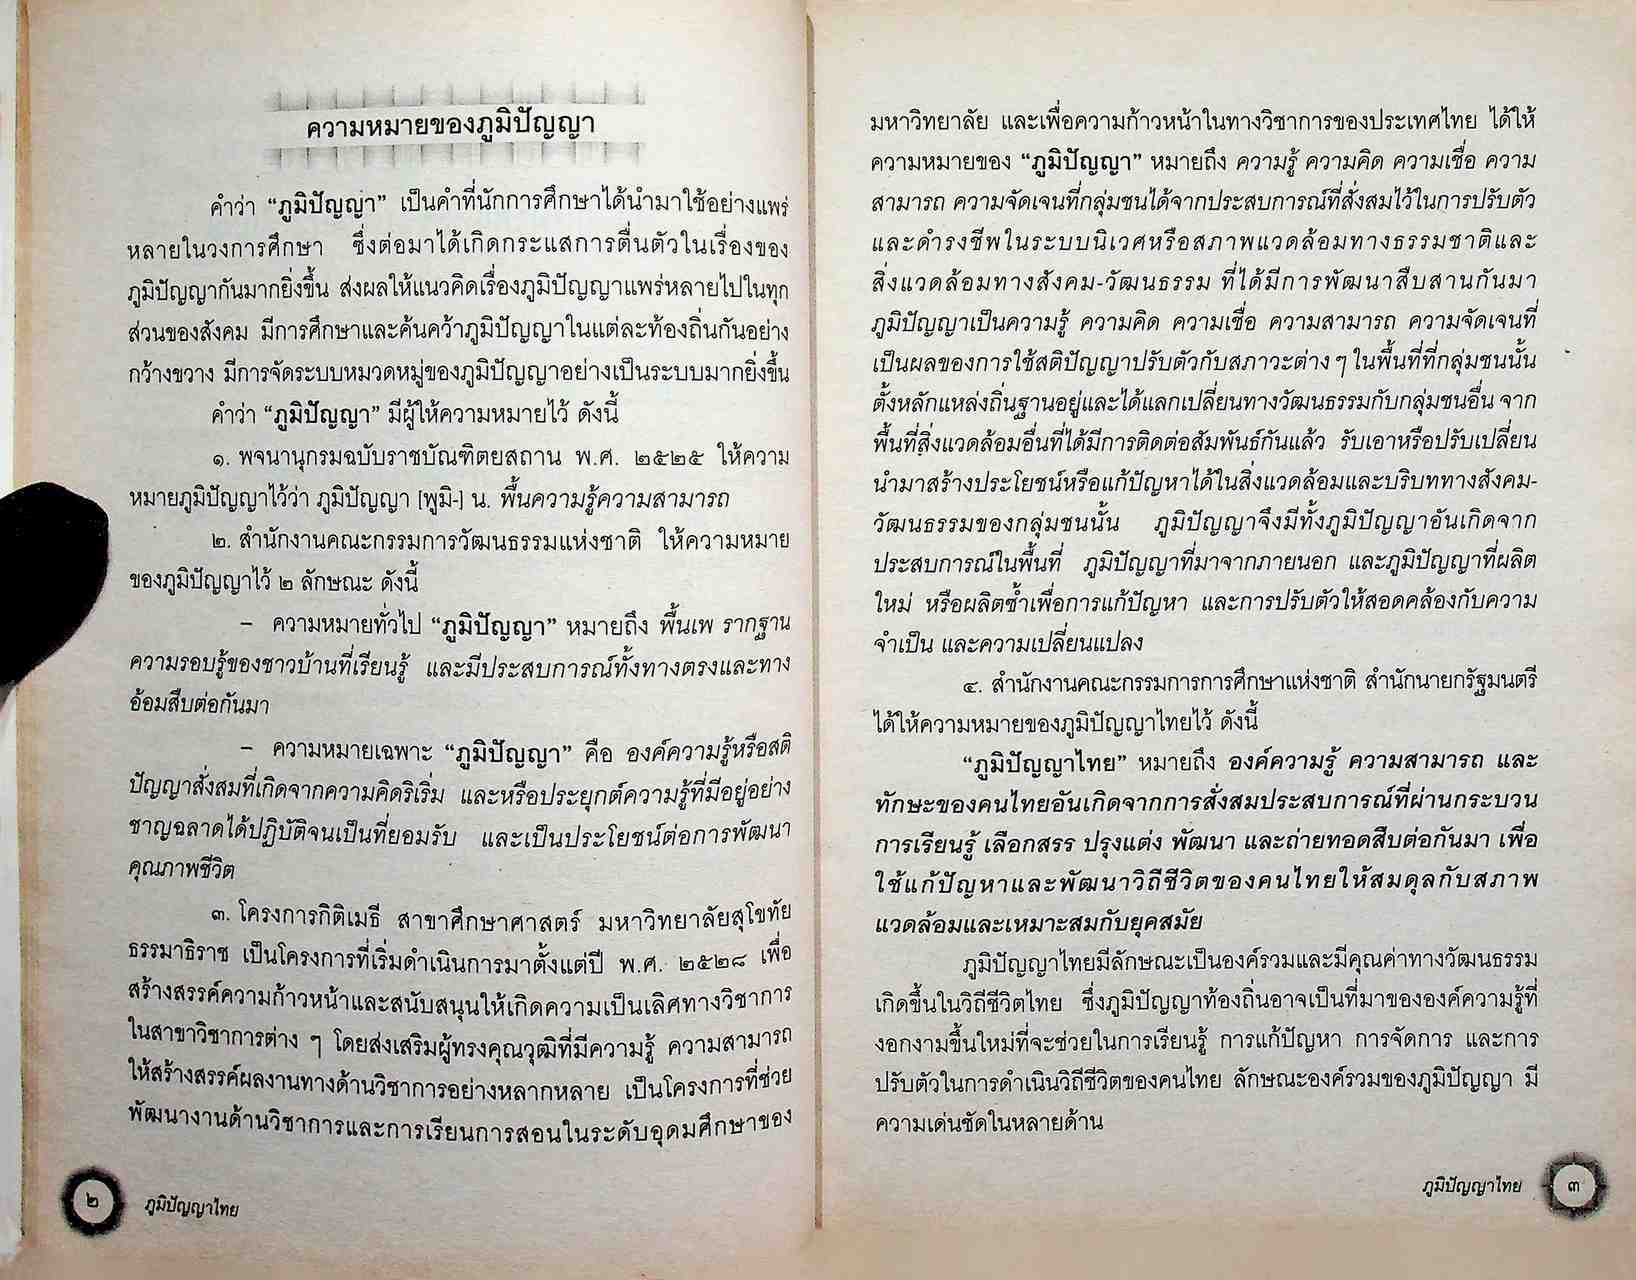 ความหมายของภูมิปัญญา
คำว่า “ภูมิปัญญา” เป็นคำที่นักการศึกษาได้นำมาใช้อย่างแพร่
หลายในวงการศึกษา ซึ่งต่อมาได้เกิดกระแสการตื่นตัวในเรื่องของ
ภูมิปัญญากันมากยิ่งขึ้น ส่งผลให้แนวคิดเรื่องภูมิปัญญาแพร่หลายไปในทุก
ส่วนของสังคม มีการศึกษาและค้นคว้าภูมิปัญญาในแต่ละท้องถิ่นกันอย่าง
กว้างขวาง มีการจัดระบบหมวดหมู่ของภูมิปัญญาอย่างเป็นระบบมากยิ่งขึ้น
คำว่า “ภูมิปัญญา” มีผู้ให้ความหมายไว้ ดังนี้
๑. พจนานุกรมฉบับราชบัณฑิตยสถาน พ.ศ. ๒๕๒๕ ให้ความ
หมายภูมิปัญญาไว้ว่า ภูมิปัญญา [พูมิ-] น. พื้นความรู้ความสามารถ
๒. สำนักงานคณะกรรมการวัฒนธรรมแห่งชาติ ให้ความหมาย
ของภูมิปัญญาไว้ ๒ ลักษณะ ดังนี้
– ความหมายทั่วไป “ภูมิปัญญา” หมายถึง พื้นเพ รากฐาน
ความรอบรู้ของชาวบ้านที่เรียนรู้ และมีประสบการณ์ทั้งทางตรงและทาง
อ้อมสืบต่อกันมา
– ความหมายเฉพาะ “ภูมิปัญญา” คือ องค์ความรู้หรือสติ
ปัญญาสั่งสมที่เกิดจากความคิดริเริ่ม และหรือประยุกต์ความรู้ที่มีอยู่อย่าง
ชาญฉลาดได้ปฏิบัติจนเป็นที่ยอมรับ และเป็นประโยชน์ต่อการพัฒนา
คุณภาพชีวิต
๓. โครงการกิติเมธี สาขาศึกษาศาสตร์ มหาวิทยาลัยสุโขทัย
ธรรมาธิราช เป็นโครงการที่เริ่มดำเนินการมาตั้งแต่ปี พ.ศ. ๒๕๒๘ เพื่อ
สร้างสรรค์ความก้าวหน้าและสนับสนุนให้เกิดความเป็นเลิศทางวิชาการ
ในสาขาวิชาการต่าง ๆ โดยส่งเสริมผู้ทรงคุณวุฒิที่มีความรู้ ความสามารถ
ให้สร้างสรรค์ผลงานทางด้านวิชาการอย่างหลากหลาย เป็นโครงการที่ช่วย
พัฒนางานด้านวิชาการและการเรียนการสอนในระดับอุดมศึกษาของ
๒ ภูมิปัญญาไทย
มหาวิทยาลัย และเพื่อความก้าวหน้าในทางวิชาการของประเทศไทย ได้ให้
ความหมายของ “ภูมิปัญญา” หมายถึง ความรู้ ความคิด ความเชื่อ ความ
สามารถ ความจัดเจนที่กลุ่มชนได้จากประสบการณ์ที่สั่งสมไว้ในการปรับตัว
และดำรงชีพในระบบนิเวศหรือสภาพแวดล้อมทางธรรมชาติและ
สิ่งแวดล้อมทางสังคม-วัฒนธรรม ที่ได้มีการพัฒนาสืบสานกันมา
ภูมิปัญญาเป็นความรู้ ความคิด ความเชื่อ ความสามารถ ความจัดเจนที่
เป็นผลของการใช้สติปัญญาปรับตัวกับสภาวะต่าง ๆ ในพื้นที่ที่กลุ่มชนนั้น
ตั้งหลักแหล่งถิ่นฐานอยู่และได้แลกเปลี่ยนทางวัฒนธรรมกับกลุ่มชนอื่น จาก
พื้นที่สิ่งแวดล้อมอื่นที่ได้มีการติดต่อสัมพันธ์กันแล้ว รับเอาหรือปรับเปลี่ยน
นำมาสร้างประโยชน์หรือแก้ปัญหาได้ในสิ่งแวดล้อมและบริบททางสังคม-
วัฒนธรรมของกลุ่มชนนั้น ภูมิปัญญาจึงมีทั้งภูมิปัญญาอันเกิดจาก
ประสบการณ์ในพื้นที่ ภูมิปัญญาที่มาจากภายนอก และภูมิปัญญาที่ผลิต
ใหม่ หรือผลิตซ้ำเพื่อการแก้ปัญหา และการปรับตัวให้สอดคล้องกับความ
จำเป็น และความเปลี่ยนแปลง
๔. สำนักงานคณะกรรมการการศึกษาแห่งชาติ สำนักนายกรัฐมนตรี
ได้ให้ความหมายของภูมิปัญญาไทยไว้ ดังนี้
“ภูมิปัญญาไทย” หมายถึง องค์ความรู้ ความสามารถ และ
ทักษะของคนไทยอันเกิดจากการสั่งสมประสบการณ์ที่ผ่านกระบวน
การเรียนรู้ เลือกสรร ปรุงแต่ง พัฒนา และถ่ายทอดสืบต่อกันมา เพื่อ
ใช้แก้ปัญหาและพัฒนาวิถีชีวิตของคนไทยให้สมดุลกับสภาพ
แวดล้อมและเหมาะสมกับยุคสมัย
ภูมิปัญญาไทยมีลักษณะเป็นองค์รวมและมีคุณค่าทางวัฒนธรรม
เกิดขึ้นในวิถีชีวิตไทย ซึ่งภูมิปัญญาท้องถิ่นอาจเป็นที่มาขององค์ความรู้ที่
งอกงามขึ้นใหม่ที่จะช่วยในการเรียนรู้ การแก้ปัญหา การจัดการ และการ
ปรับตัวในการดำเนินวิถีชีวิตของคนไทย ลักษณะองค์รวมของภูมิปัญญา มี
ความเด่นชัดในหลายด้าน
ภูมิปัญญาไทย ๓